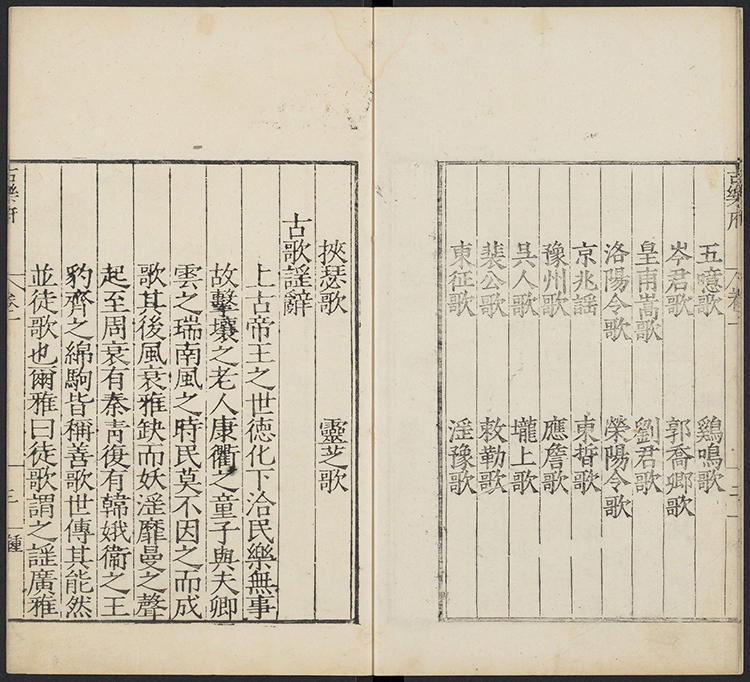 古樂府 卷一 二
五噫歌 鷄鳴歌
岑君歌 郭喬卿歌
皇甫嵩歌 劉君歌
洛陽令歌 滎陽令歌
京兆謡 束晳歌
豫州歌 應詹歌
吳人歌 壠上歌
裴公歌 敕勒歌
東征歌 淫豫歌
挾瑟歌 靈芝歌
古歌謡辭
上古帝王之世德化下洽民樂無事
故擊壤之老人康衢之童子與夫卿
雲之瑞南風之時民莫不因之而成
歌其後風衰雅缺而妖淫靡曼之聲
起至周衰有秦青復有韓娥衞之王
豹齊之綿駒皆稱善歌世傳其能然
並徒歌也爾雅曰徒歌謂之謡廣雅
古樂府 卷一 三 鍾